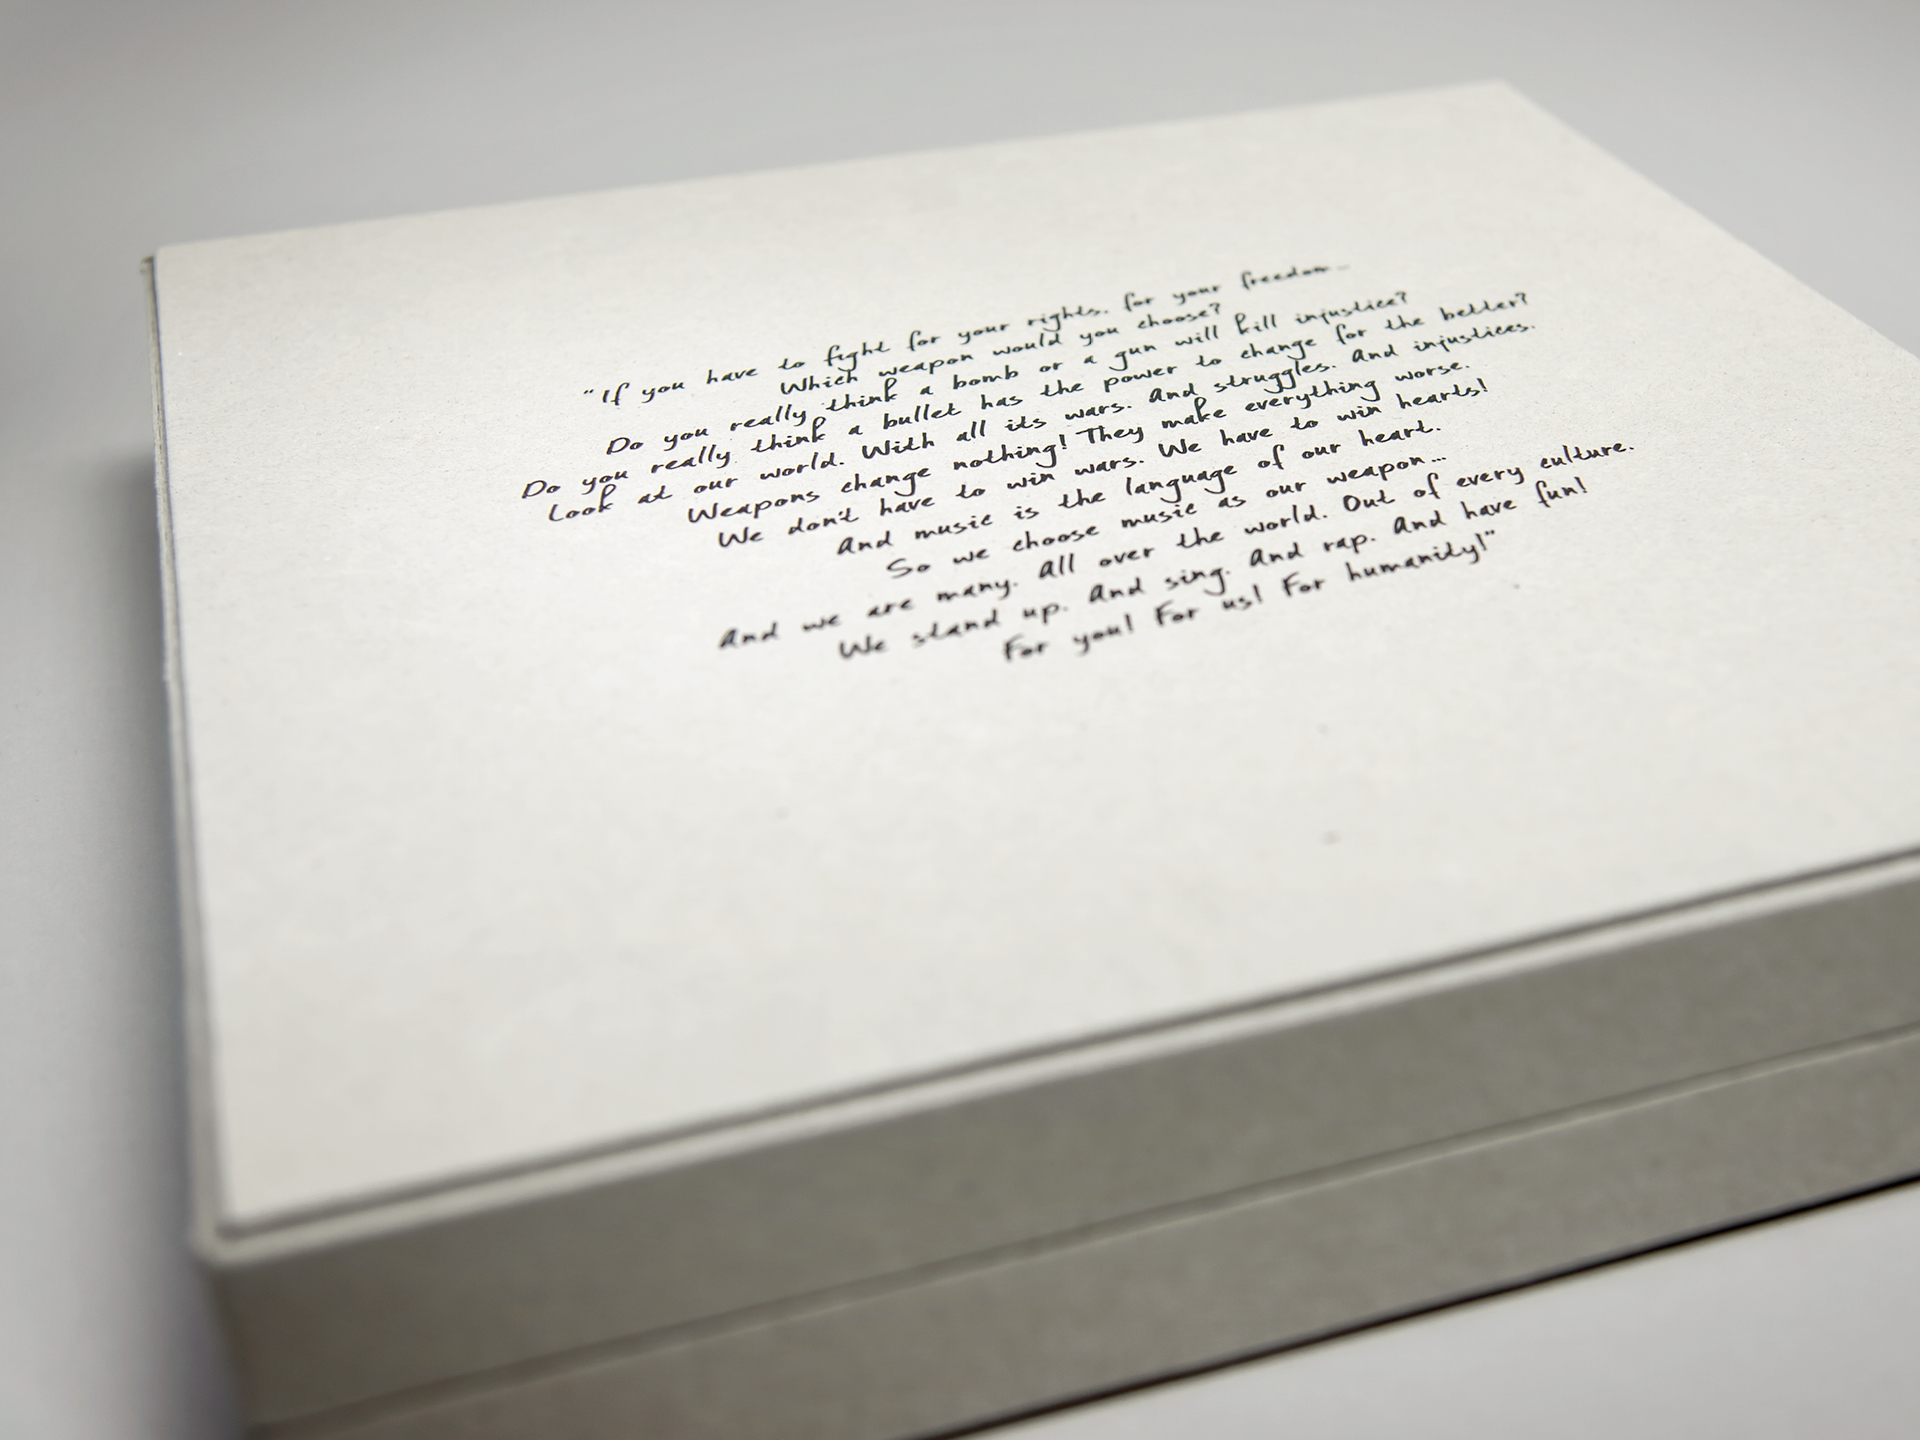 "If you have to fight for your rights, for your freedom...
Which weapon would you choose?
Do you really think a bomb or a gun will kill injustice?
Do you really think a bullet has the power to change for the better?
Look at our world. With all its wars. And struggles. And injustices.
Weapons change nothing! They make everything worse.
We don't have to win wars. We have to win hearts!
And music is the language of our heart.
So we choose music as our weapon...
And we are many. All over the world. Out of every culture.
We stand up. And sing. And rap. And have fun!
For you! For us! For humanity!"